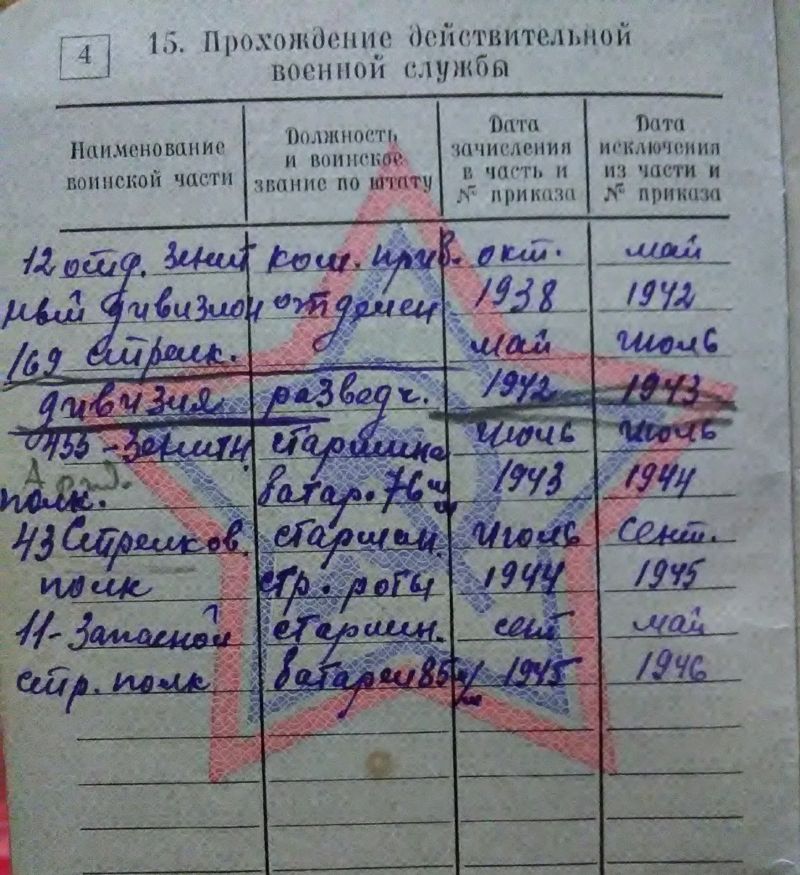 4
15. Прохождение действительной
военной службы
Наименование
воинской части
Должность
и воинское
звание по штату
Дата
зачисления
в часть и
№ приказа
Дата
исключения
из части и
№ приказа
12 отд. зенит ком. прив. окт. май
ный дивизион отделен 1938 1942
169 стрелк. май июль
дивизия разведч. 1942 1943
455-зенитн. старшина июль июль
полк. батар. 76 мм 1943 1944
43 Стрелков. старшин. июль сент.
полк стр. роты 1944 1945
11-Запасной старшин. сент май
стр. полк батареи 85 м/м 1945 1946